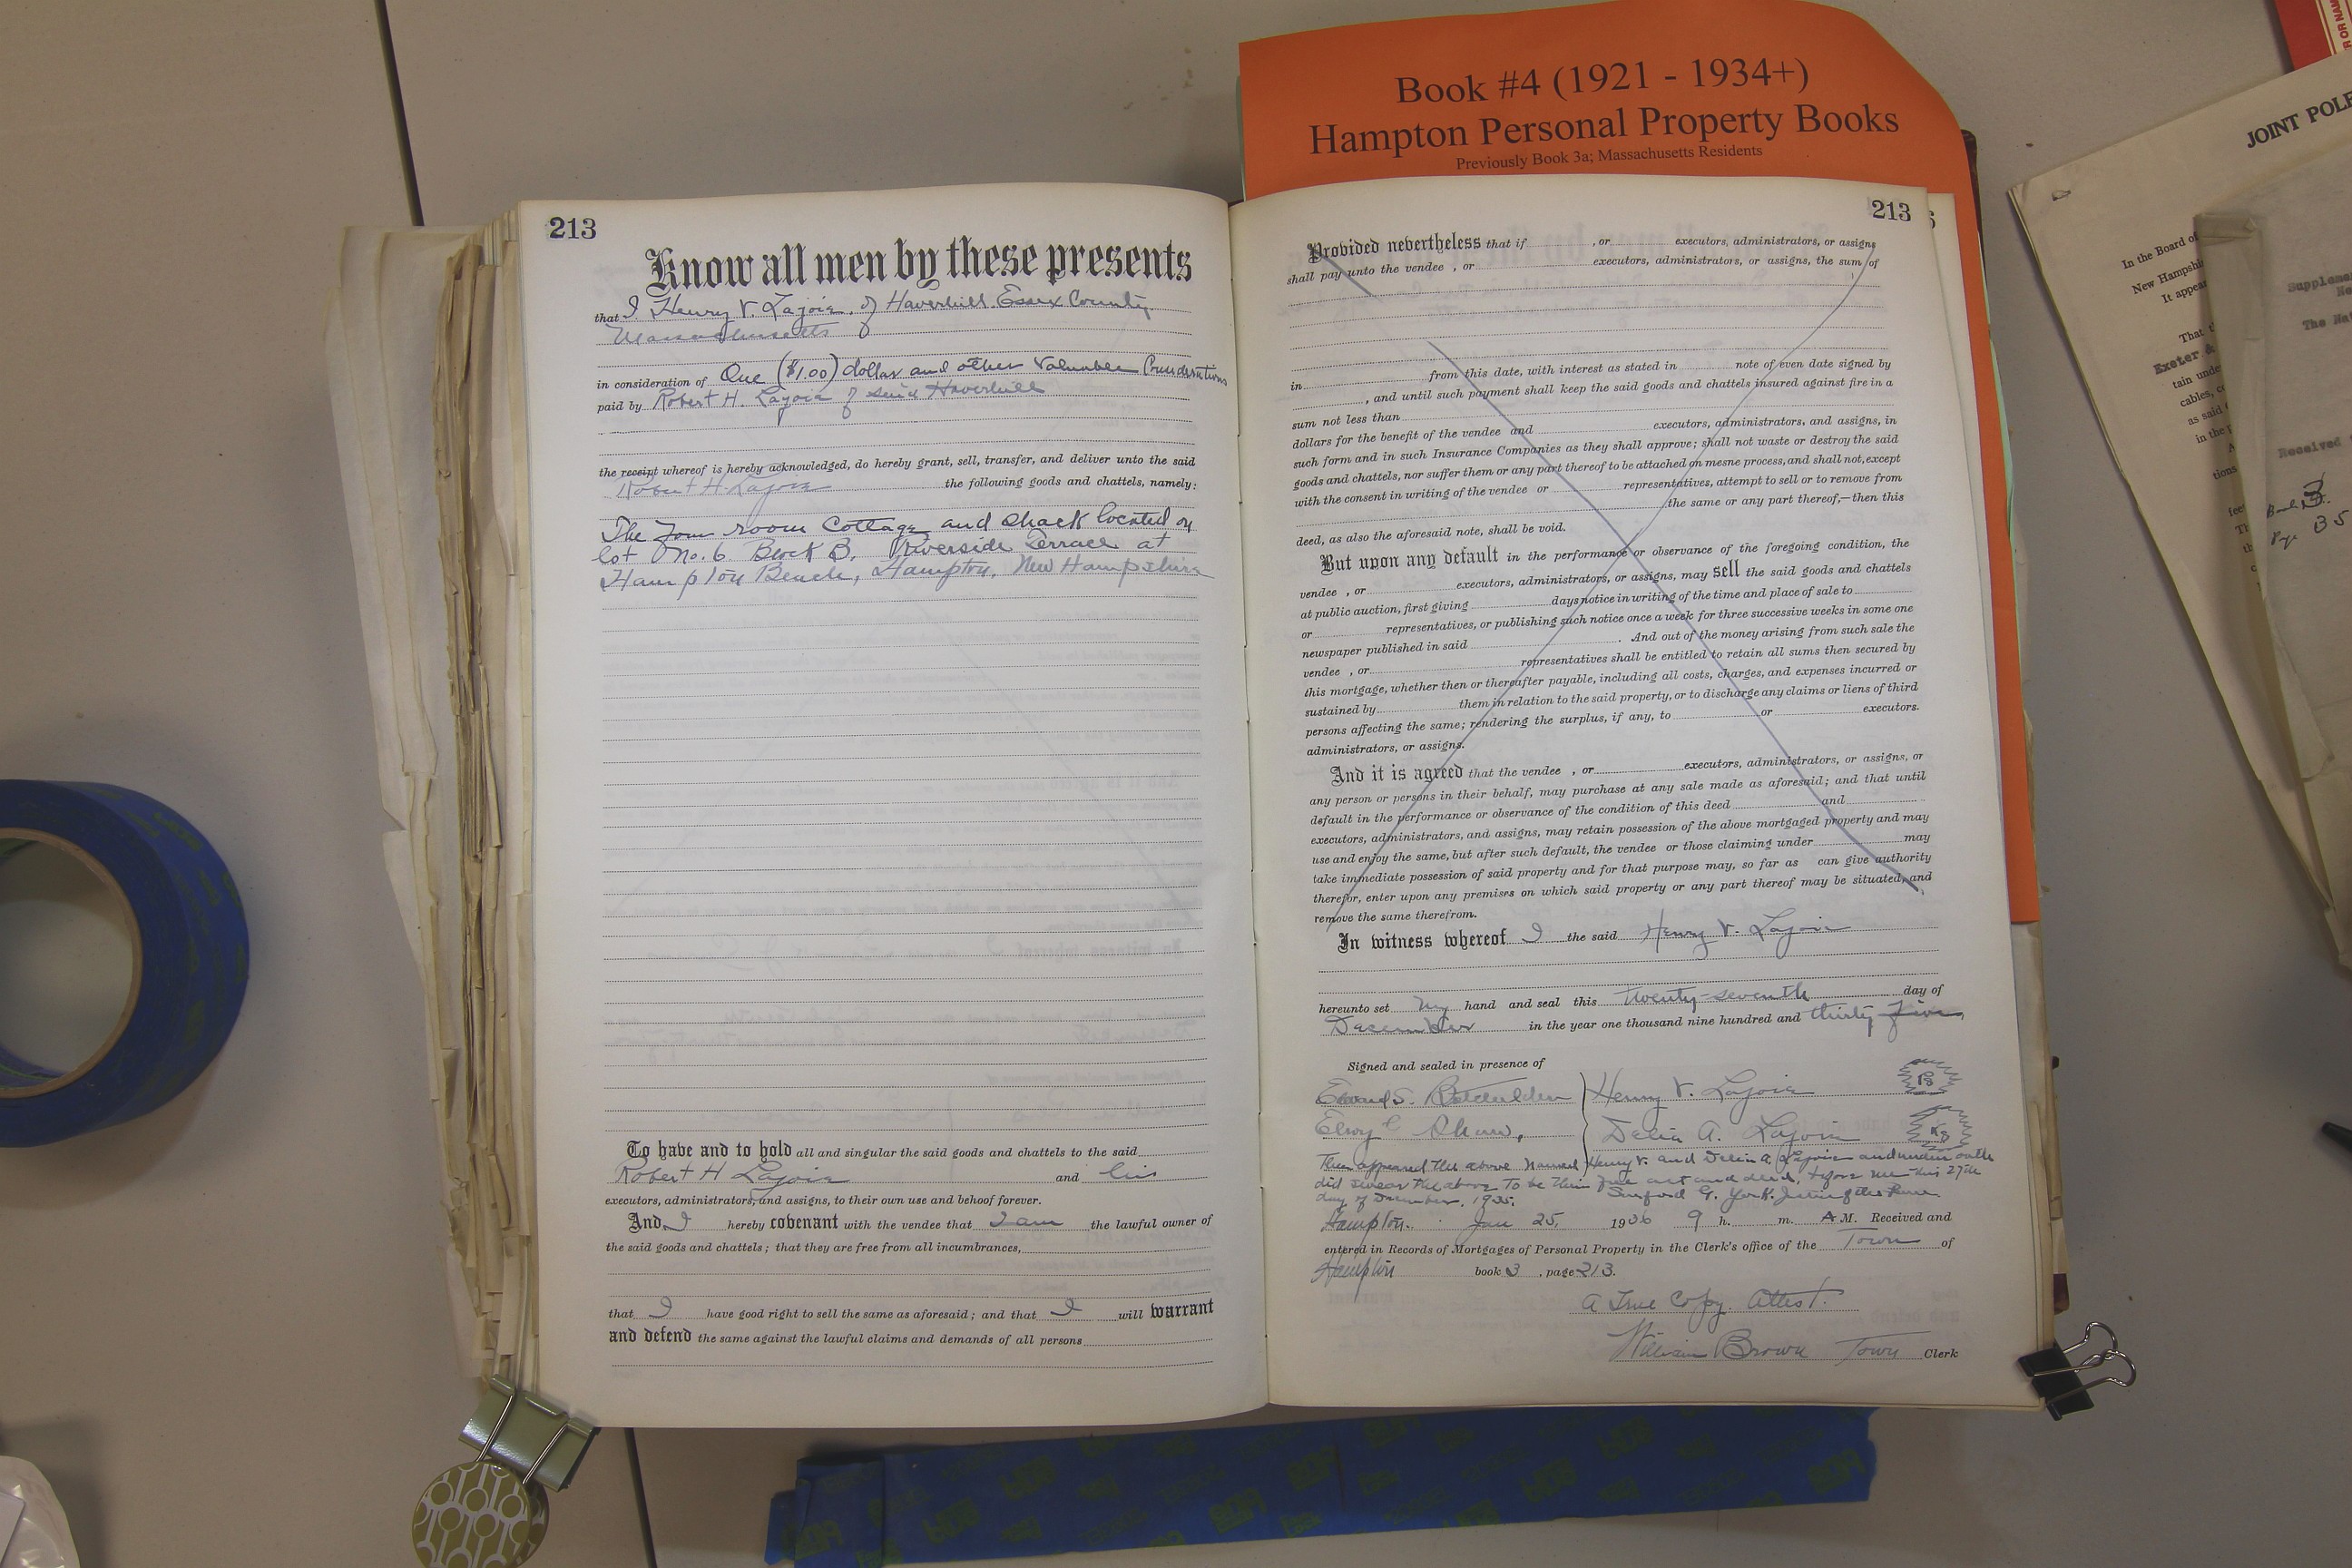 Book #4 (1921 - 1934+)
Hampton Personal Property Books
Previously Book 3a; Massachusetts Residents
213
Know all men by these presents
that I Henry V. Lajoie, of Haverhill Essex County
Massachusetts
in consideration of One ($1.00) dollar and other Valuable Considerations
paid by Robert H. Lajoie of said Haverhill
the receipt whereof is hereby acknowledged, do hereby grant, sell, transfer, and deliver unto the said
Robert H. Lajoie the following goods and chattels, namely:
The four room Cottage and shack located on
lot No. 6 Block B, Riverside Terrace at
Hampton Beach, Hampton, New Hampshire
To have and to hold all and singular the said goods and chattels to the said
Robert H Lajoie and his
executors, administrators, and assigns, to their own use and behoof forever.
And I hereby covenant with the vendee that I am the lawful owner of
the said goods and chattels; that they are free from all incumbrances,
that I have good right to sell the same as aforesaid; and that I will warrant
and defend the same against the lawful claims and demands of all persons
213
Provided nevertheless that if , or executors, administrators, or assigns
shall pay unto the vendee , or executors, administrators, or assigns, the sum of
in from this date, with interest as stated in note of even date signed by
, and until such payment shall keep the said goods and chattels insured against fire in a
sum not less than
dollars for the benefit of the vendee and executors, administrators, and assigns, in
such form and in such Insurance Companies as they shall approve; shall not waste or destroy the said
goods and chattels, nor suffer them or any part thereof to be attached on mesne process, and shall not, except
with the consent in writing of the vendee or representatives, attempt to sell or to remove from
the same or any part thereof,—then this
deed, as also the aforesaid note, shall be void.
But upon any default in the performance or observance of the foregoing condition, the
vendee , or executors, administrators, or assigns, may sell the said goods and chattels
at public auction, first giving days notice in writing of the time and place of sale to
or representatives, or publishing such notice once a week for three successive weeks in some one
newspaper published in said . And out of the money arising from such sale the
vendee , or representatives shall be entitled to retain all sums then secured by
this mortgage, whether then or thereafter payable, including all costs, charges, and expenses incurred or
sustained by them in relation to the said property, or to discharge any claims or liens of third
persons affecting the same; rendering the surplus, if any, to or executors.
administrators, or assigns.
And it is agreed that the vendee , or executors, administrators, or assigns, or
any person or persons in their behalf, may purchase at any sale made as aforesaid; and that until
default in the performance or observance of the condition of this deed and
executors, administrators, and assigns, may retain possession of the above mortgaged property and may
use and enjoy the same, but after such default, the vendee or those claiming under may
take immediate possession of said property and for that purpose may, so far as can give authority
therefor, enter upon any premises on which said property or any part thereof may be situated, and
remove the same therefrom.
In witness whereof I the said Henry V. Lajoie
hereunto set my hand and seal this twenty-seventh day of
December in the year one thousand nine hundred and thirty five
Signed and sealed in presence of
Edward S. Batchelder Henry V. Lajoie
Elroy Shaw, Delia A. Lajoie
Then appeared the above named Henry V. and Delia A. Lajoie and under oath
did swear the above to be their free act and deed, before me this 27th
day of December, 1935. Sanford G. York. Justice of the Peace
Hampton. Jan 25, 1936 9 h. m. A M. Received and
entered in Records of Mortgages of Personal Property in the Clerk's office of the Town of
Hampton book 3 , page 213.
A True Copy. Attest.
William Brown Town Clerk
JOINT POLE
In the Board of
New Hampshi
It appear
Exeter &
tain unde
cables, c
as said
in the p
Received